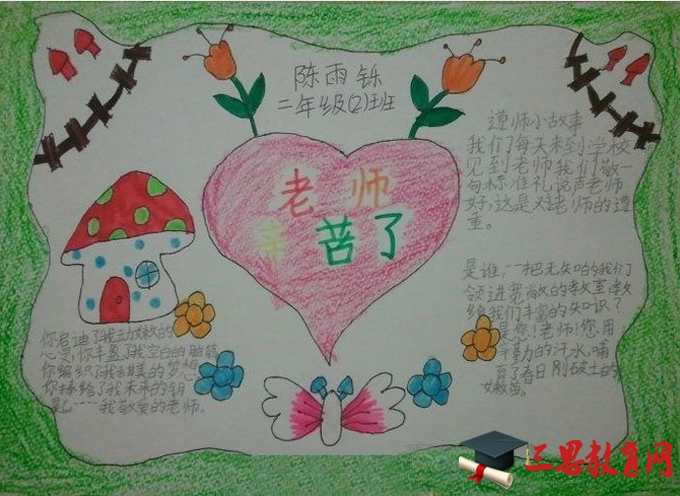 陈雨铄
二年级(2)班
老师
辛苦了
遵师小故事
我们每天来到学校
见到老师我们敬一
句标准礼说声老师
好,这是对老师的遵
重。
是谁,一把无知的我们
领进宽敞的教室,教
给我们丰富的知识?
是您!老师!您用
辛勤的汗水,哺
育了春日刚破土的
嫩苗。
你启迪了我幼嫩的
心灵,你丰盈了我空白的脑筋
你编织了我甜美的梦想
你捧给了我未来的钥
匙一一我敬爱的老师。
三思教育网